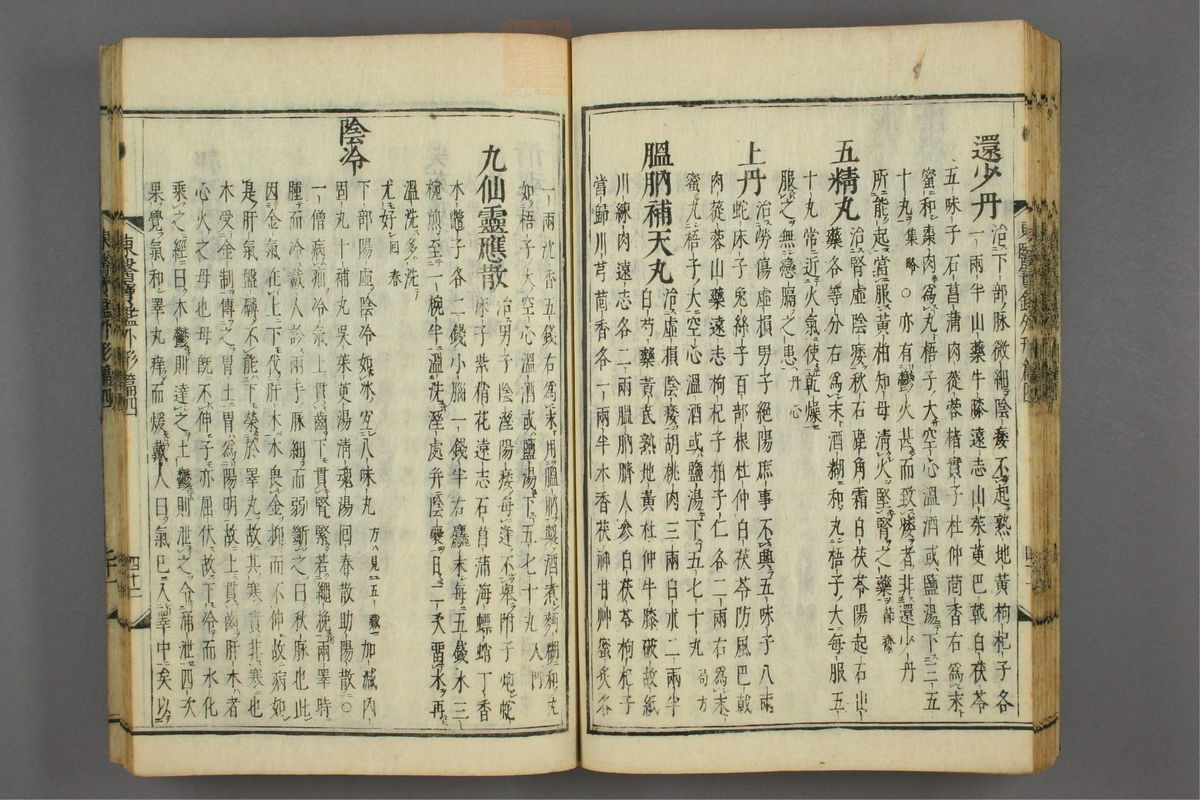 還少丹 治下部脉微細陰痿不起熟地黃枸杞子各
五味子石菖蒲肉蓯蓉楮實子杜仲茴香右爲末
一兩半山藥牛膝遠志山茱萸巴戟白茯苓
蜜和棗肉爲丸梧子大空心溫酒或鹽湯下三五
十丸集略○亦有鬱火甚而致痿者非還少丹
所能起當服黃柏知母清火堅腎之藥
五精丸 治腎虛陰痿秋石鹿角霜白茯苓陽起石山
藥各等分右爲末酒糊和丸梧子大每服五
十丸常近火氣使乾燥
服之無戀膈之患丹心
上丹 治勞傷虛損男子絕陽庶事不興五味子八兩
蛇床子兔絲子百部根杜仲白茯苓防風巴戟
肉蓯蓉山藥遠志枸杞子柏子仁各二兩右爲末
蜜丸梧子大空心溫酒或鹽湯下五七十丸 局方
膃肭補天丸 治虛損陰痿胡桃肉三兩白朮二兩半
白芍藥黃芪熟地黃杜仲牛膝破故紙
川練肉遠志各二兩膃肭臍人參白茯苓枸杞子
當歸川芎茴香各一兩半木香茯神甘艸蜜炙各
一兩沈香五錢右爲末用膃肭製酒煮麪糊和丸
如梧子大空心溫酒或鹽湯下五七十丸入門
九仙靈應散 治男子陰溼陽痿每逢不興附子炮蛇
床子紫稍花遠志石菖蒲海螵蛸丁香
木鼈子各二錢小腦一錢半右麤末每五錢水三
椀煎至一椀半溫洗溼處幷陰囊日二次留水再
溫洗多洗
尤好回春
陰冷
下部陽虛陰冷如冰宜八味丸方見五藏加減內
固丸十補丸吳茱萸湯淸魂湯回春散助陽散○
一僧病疝冷氣上貫齒下貫腎緊若繩挽兩睪時
腫而冷戴人診兩手脉細而弱斷之曰秋脉也此
因金氣在上下伐肝木木畏金抑而不伸故病如
是肝氣盤礴不能下榮於睪丸故其寒實非寒也
木受金制傳之胃土胃爲陽明故上貫齒肝木者
心火之母也母旣不伸子亦屈伏故下冷而水化
乘之經曰木鬱則達之土鬱則泄之令涌泄四次
果覺氣和睪丸痒而煖戴人曰氣已入睪中矣以
東醫寶鑑外形篇四